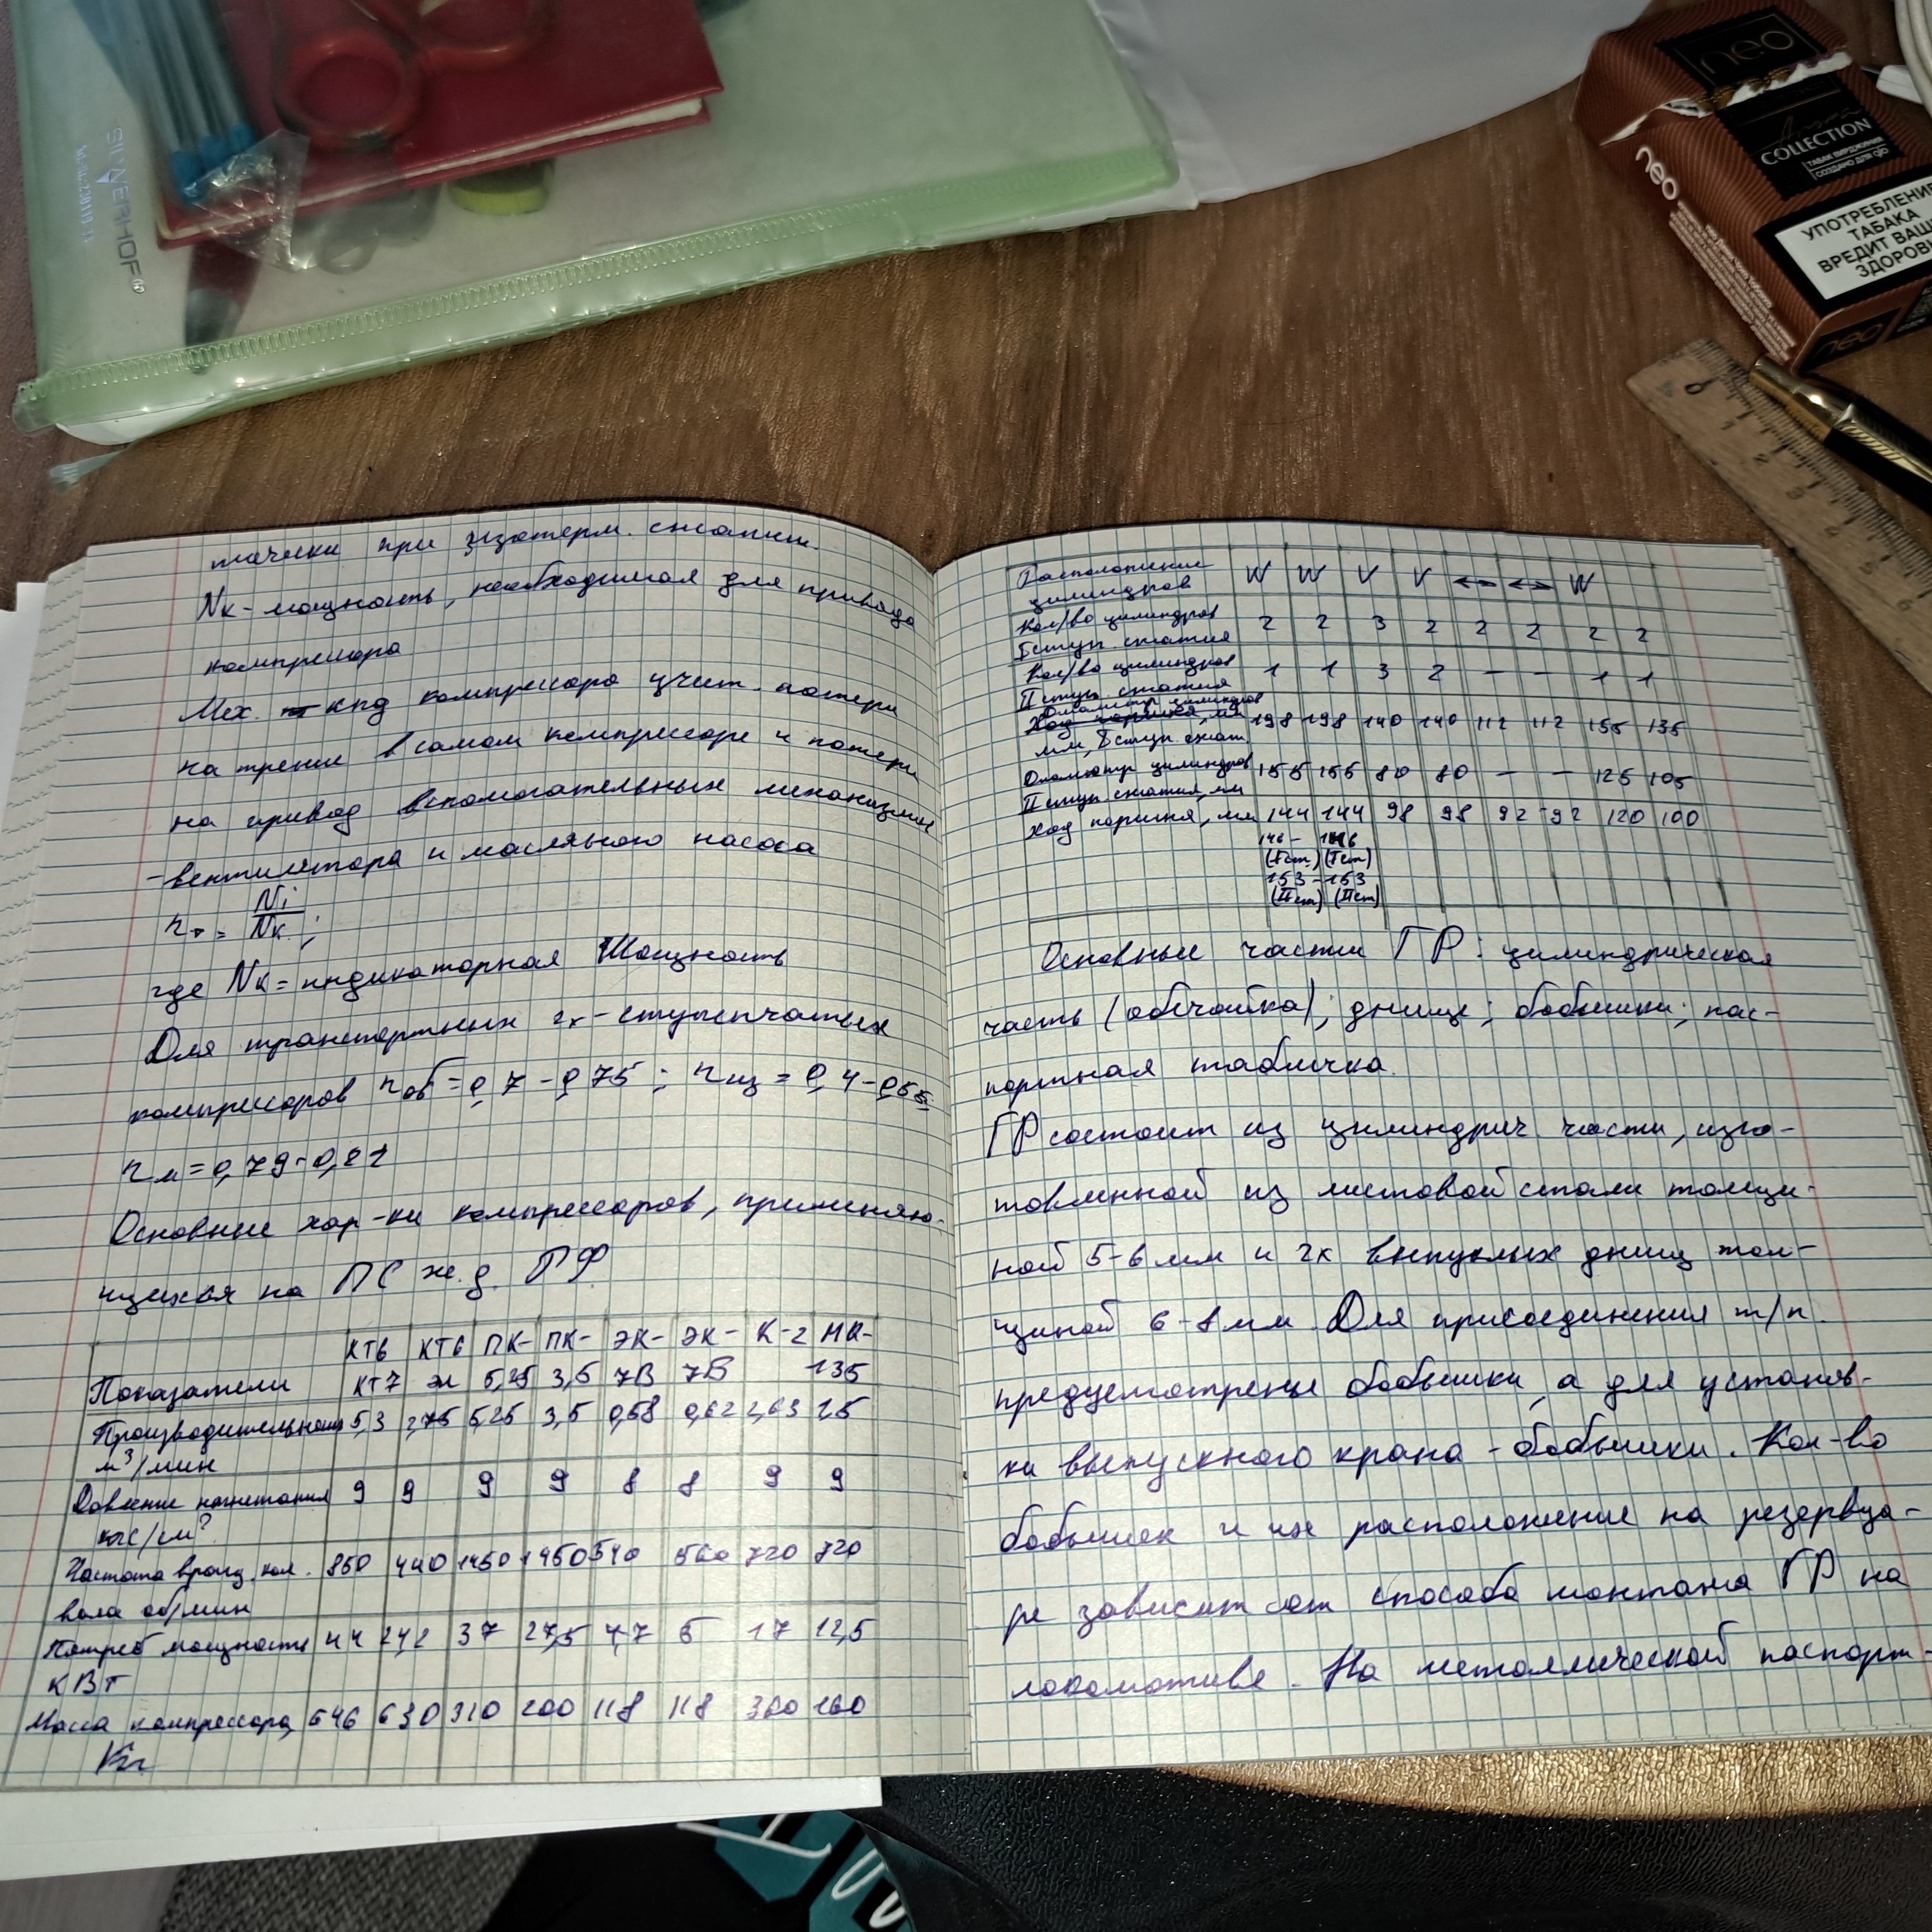 SILWERHOF®
neo
COLLECTION
ТАБАК ВИРДЖИНИЯ
СОЗДАНО ДЛЯ glo
neo
УПОТРЕБЛЕНИЕ
ТАБАКА
ВРЕДИТ ВАШЕ
ЗДОРОВЬ
neo
0 1 2
тачики при изотерм. сжатии.
Nк - мощность, необходимая для привода
компрессора
Мех. кпд компрессора учит. потери
на трение в самом компрессоре и потери
на привод вспомогательных механизмов
- вентилятора и масляного насоса
= Ni / Nк ;
где Nк = индикаторная мощность
Для транспортных 2х-ступенчатых
компрессоров ηоб = 0,7 - 0,75 ; ηиз = 0,4 - 0,55
ηм = 0,79 - 0,81
Основные хар-ки компрессоров, применяю-
щихся на ПС ж.д. РФ
Показатели КТ6 КТ7 КТ6 эл ПК-5,25 ПК-3,5 ЭК-7В ЭК-7В К-2 МК-135
Производительность м³/мин 5,3 2,75 5,25 3,5 0,58 0,62 2,63 1,5
Давление нагнетания кгс/см² 9 9 9 9 8 8 9 9
Частота вращ. кол. вала об/мин 850 440 1450 1450 540 560 720 720
Потреб мощность кВт 44 24,2 37 27,5 4,7 5 17 12,5
Масса компрессора, кг 646 630 310 200 118 118 360 260
Расположение цилиндров W W V V ↔ ↔ W
Кол/во цилиндров I ступ. сжатия 2 2 3 2 2 2 2 2
Кол/во цилиндров II ступ. сжатия 1 1 3 2 - - 1 1
Диаметр цилиндров мм, I ступ. сжат 198 198 140 140 112 112 155 135
Диаметр цилиндров II ступ. сжатия, мм 155 155 80 80 - - 125 105
Ход поршня, мм 144 144 98 98 92 92 120 100
146 - 146
(I ст) (I ст)
153 - 153
(II ст) (II ст)
Основные части ГР: цилиндрическая
часть (обечайка); днище; бобышки; пас-
портная табличка.
ГР состоит из цилиндрич части, изго-
товленной из листовой стали толщи-
ной 5-6 мм и 2х выпуклых днищ тол-
щиной 6-8 мм. Для присоединения т/п.
предусмотрены бобышки, а для установ-
ки выпускного крана - бобышки. Кол-во
бобышек и их расположение на резервуа-
ре зависит от способа монтажа ГР на
локомотиве. На металлической паспорт-